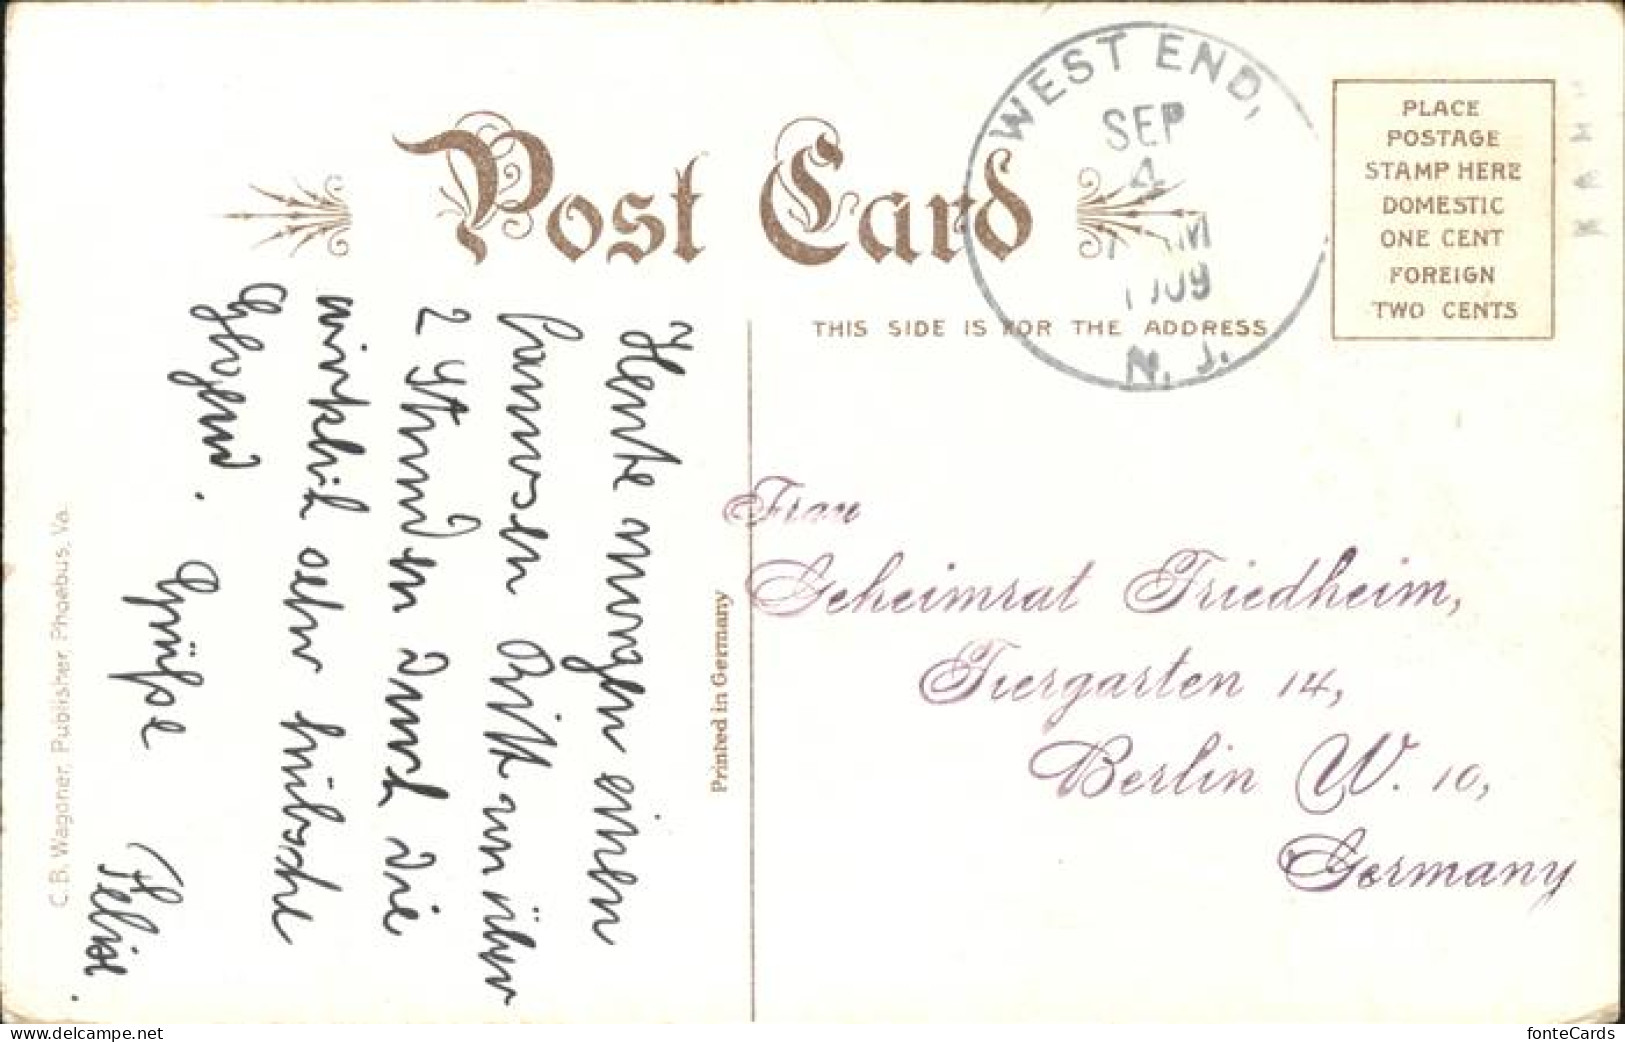 Post Card
WEST END,
SEP
4
1909
N. J.
PLACE
POSTAGE
STAMP HERE
DOMESTIC
ONE CENT
FOREIGN
TWO CENTS
THIS SIDE IS FOR THE ADDRESS
Heute morgen einen
famosen Ritt von über
2 Stunden durch die
wirklich sehr hübsche
Gegend. Grüße
Felise.
Frau
Geheimrat Friedheim,
Tiergarten 14,
Berlin W. 10,
Germany
Printed in Germany
C. B. Wagoner, Publisher, Phoebus, Va.
www.delcampe.net
fonteCards